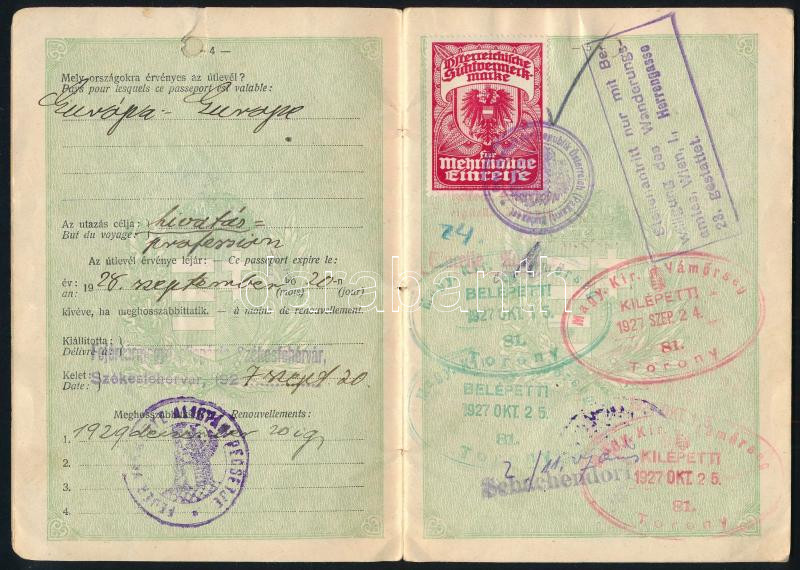 — 4 —
Mely országokra érvényes az útlevél?
Pays pour lesquels ce passeport est valable:
Európa - Europe
Az utazás célja: hivatás =
But du voyage: profession
Az útlevél érvénye lejár: — Ce passeport expire le:
év: 1928. szeptember hó 20-n
an: (mois) (jour)
kivéve, ha meghosszabbittatik. — à moins de renouvellement.
Kiállította:
Délivré par:
Székesfehérvár,
Kelet: Székesfehérvár, 192 7 szept 20.
Date:
Meghosszabbítás Renouvellements:
1. 1929 december 20 ig
2.
3.
4.
Österreichische
Sichtvermerk
marke
für
Mehrmalige
Einreise
Republik Österreich
Stellenantritt nur mit Be-
willigung des Wanderungs-
amtes, Wien, I., Herrengasse
23, gestattet.
24.
Magy. Kir. Vámőrség
BELÉPETT!
1927 OKT. 15.
81.
Torony
Magy. Kir. Vámőrség
KILÉPETT!
1927 SZEP. 24.
81.
Torony
BELÉPETT!
1927 OKT. 25.
81.
Torony
Magy. Kir. Vámőrség
KILÉPETT!
1927 OKT. 25.
81.
Torony
Schachendorf
darabanth.com